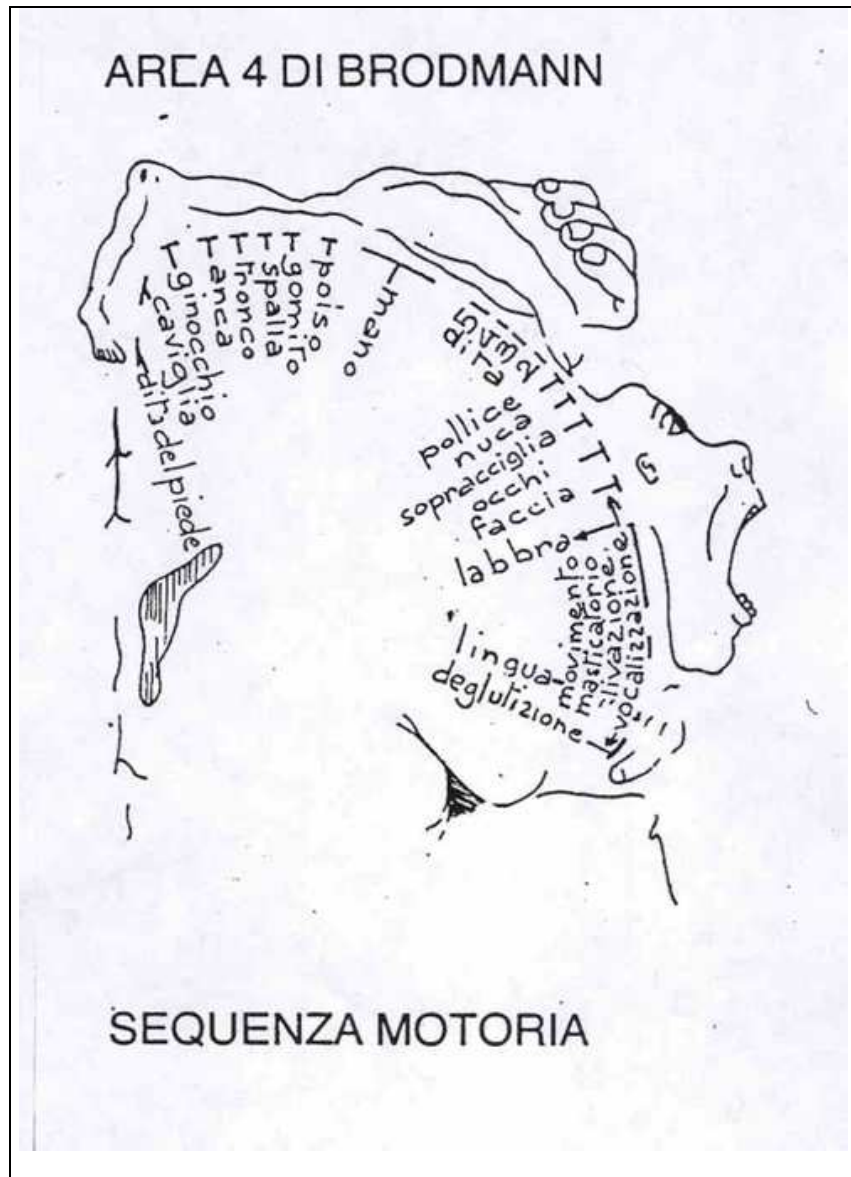 AREA 4 DI BRODMANN
dita del piede
caviglia
ginocchio
anca
tronco
spalla
gomito
polso
mano
dita
5
4
3
2
pollice
nuca
sopracciglia
occhi
faccia
labbra
vocalizzazione
masticatorio
movimento
lingua-
deglutizione
SEQUENZA MOTORIA